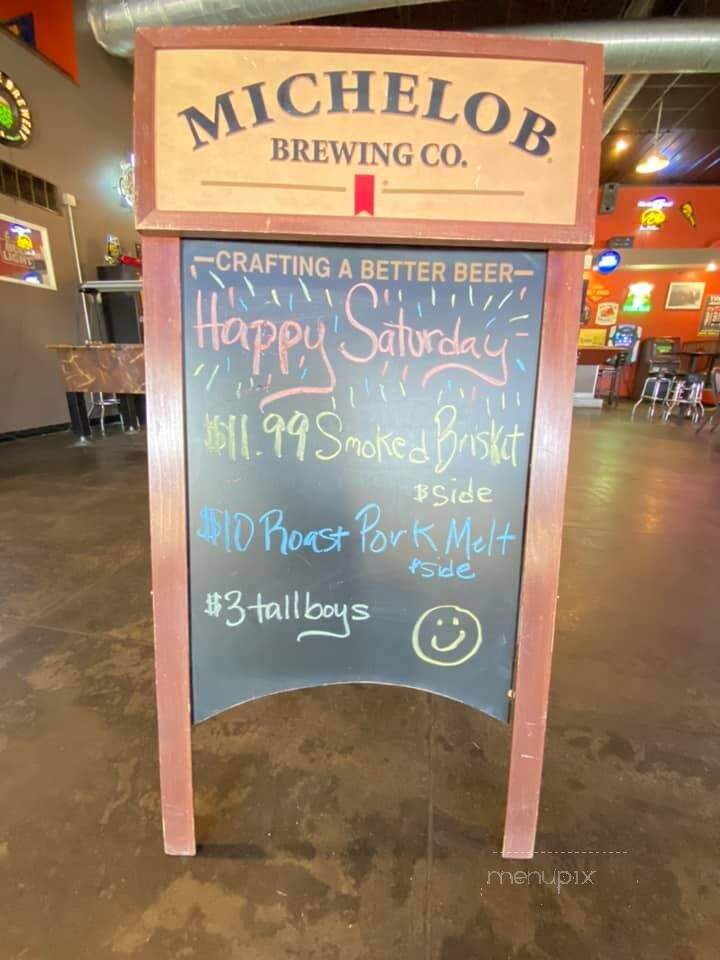 MICHELOB
BREWING CO.
CRAFTING A BETTER BEER
Happy Saturday
$11.99 Smoked Brisket
& side
$10 Roast Pork Melt
& side
$3 tallboys
menupix